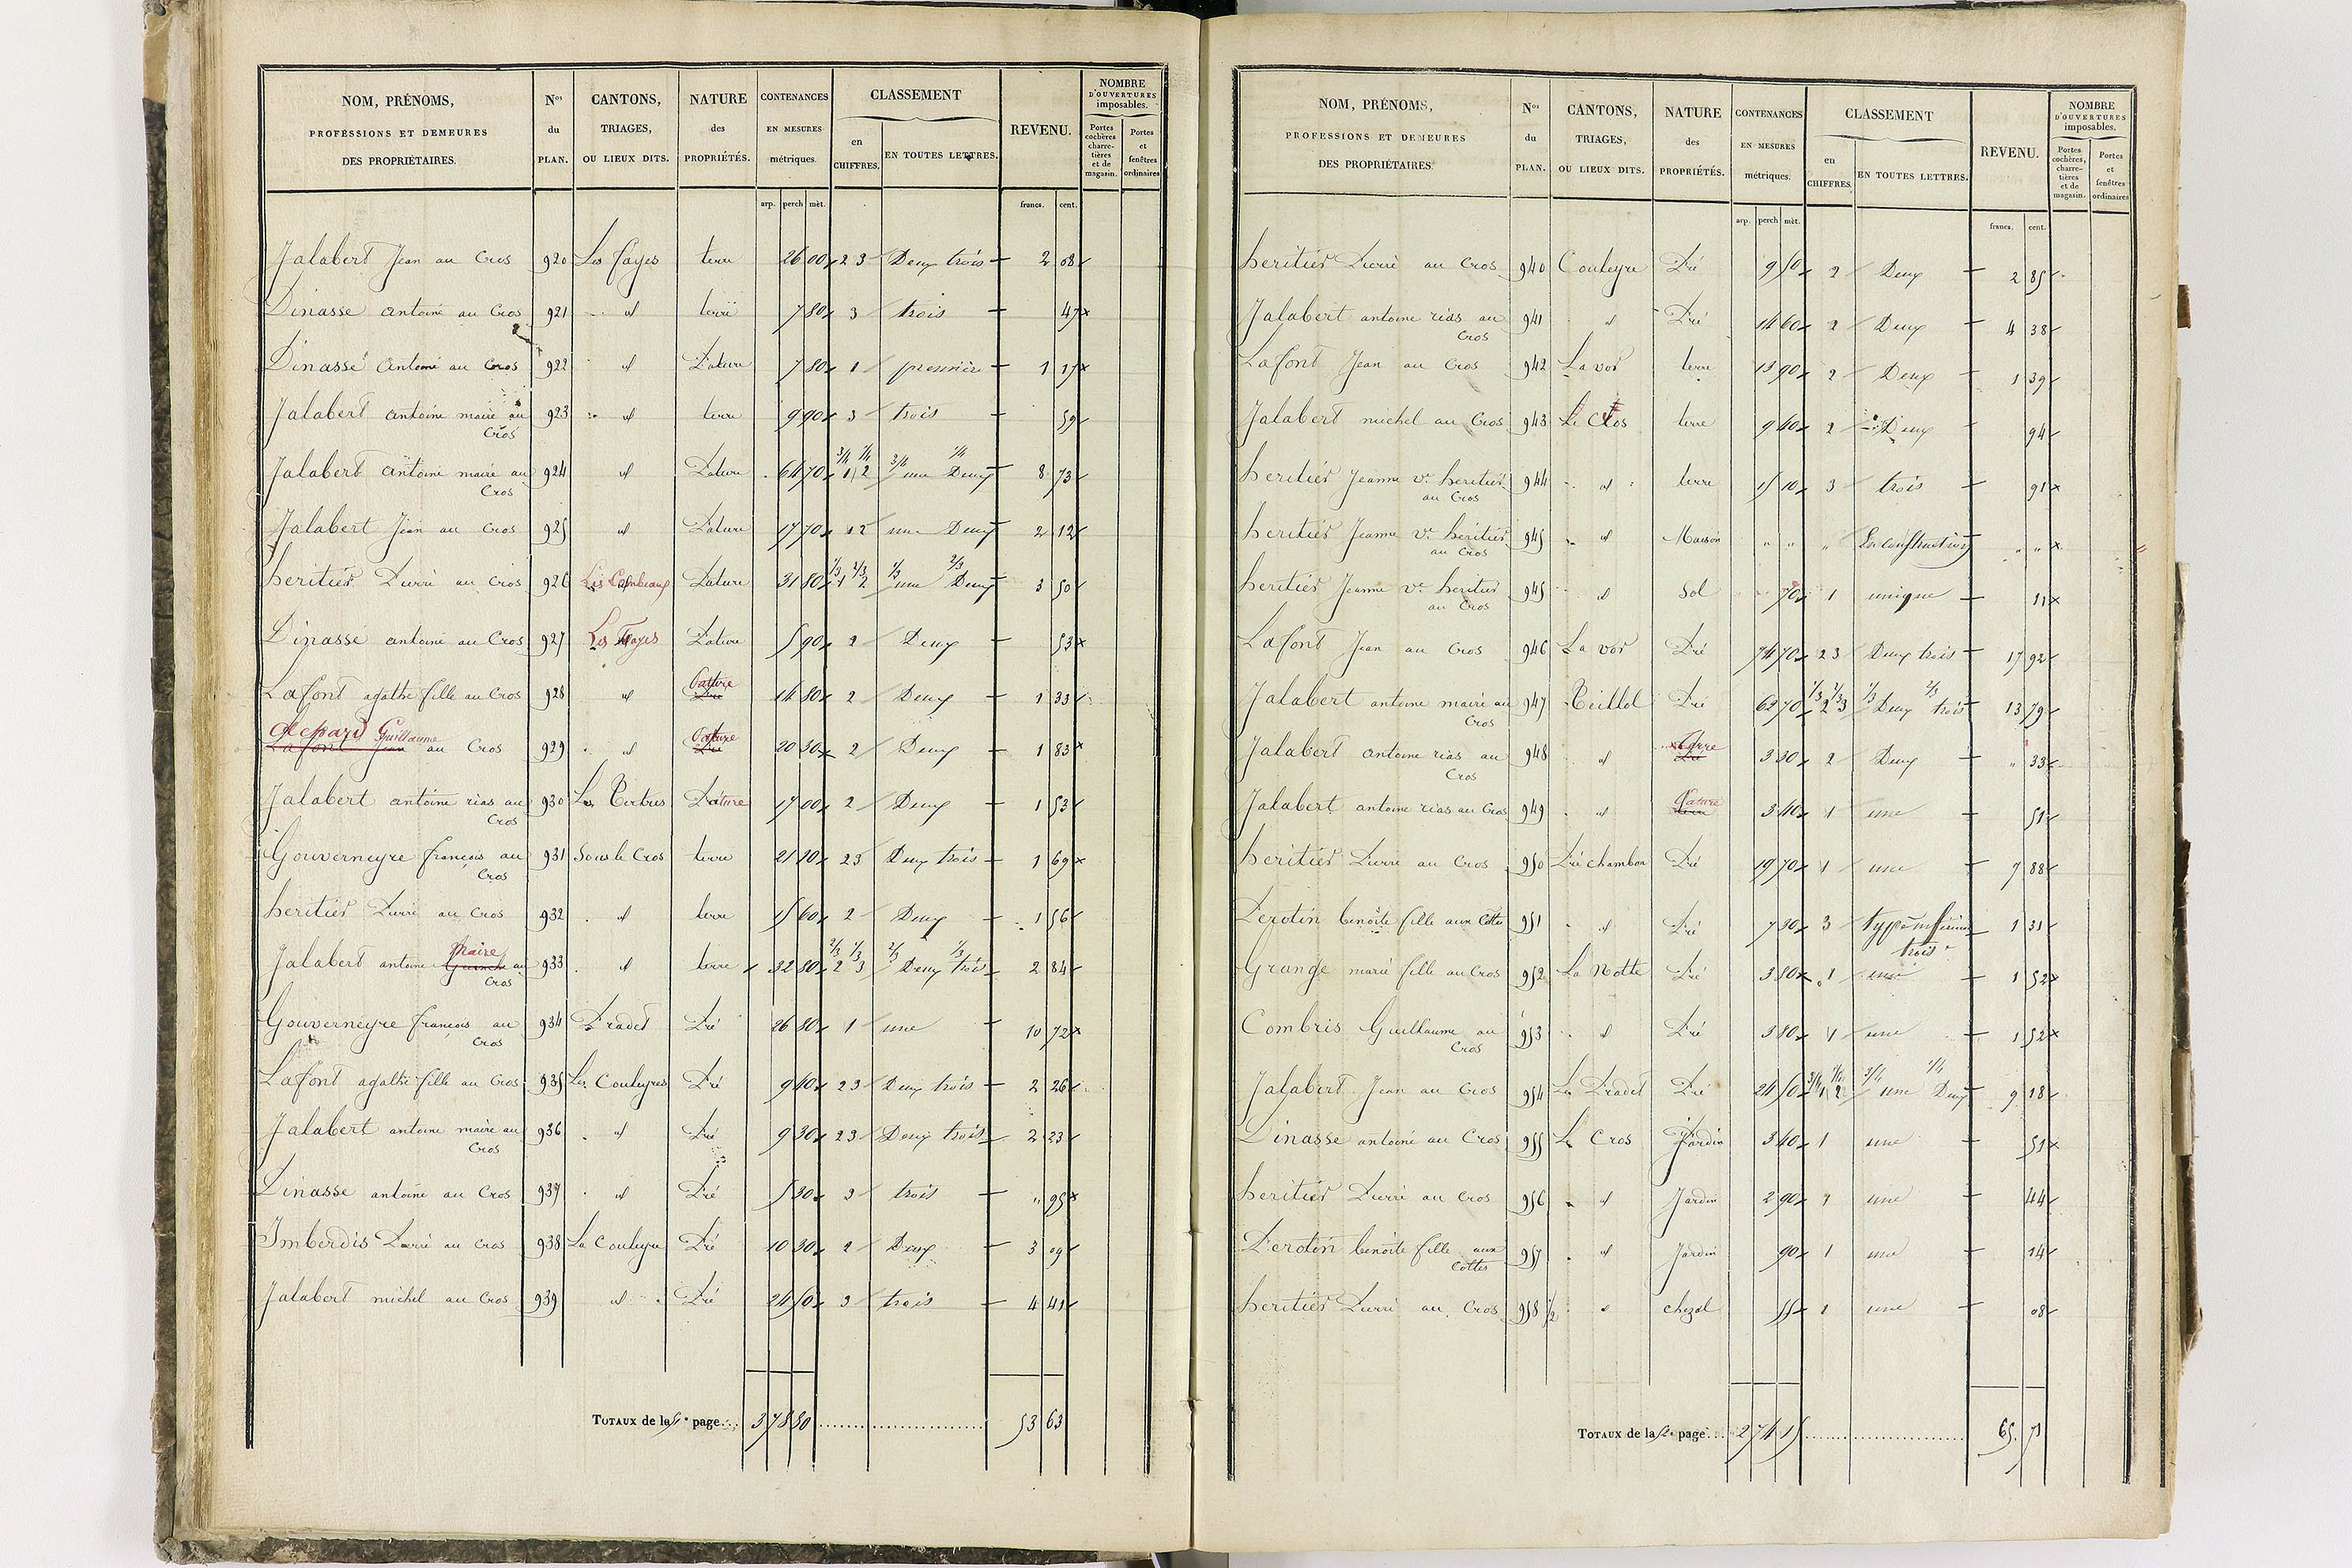 NOM, PRÉNOMS, PROFESSIONS ET DEMEURES DES PROPRIÉTAIRES. Nos du PLAN. CANTONS, TRIAGES, OU LIEUX DITS. NATURE des PROPRIÉTÉS. CONTENANCES EN MESURES métriques. CLASSEMENT en CHIFFRES. EN TOUTES LETTRES. REVENU. NOMBRE D'OUVERTURES imposables. Portes cochères charretières et de magasin. Portes et fenêtres ordinaires
arp. perch mèt. francs. cent.
Jalabert Jean au Cros 920 Les fayes terre 26 00 2 3 Deux trois 2 08
Dinasse antoine au Cros 921 id terre 7 80 3 trois 47
Dinasse Antoine au Cros 922 id Pature 7 80 1 première 1 17
Jalabert antoine maire au Cros 923 id terre 9 90 3 trois 59
Jalabert antoine maire au Cros 924 id Pature 64 70 3/4 1/4 1 2 3/4 une 1/4 Deux 8 73
Jalabert Jean au Cros 925 id Pature 17 70 1 2 une Deux 2 12
heritier Pierre au Cros 926 Pature 31 80 1/3 2/3 1 2 1/3 une 2/3 Deux 3 50
Dinasse antoine au Cros 927 Les Fayes Pature 5 90 2 Deux 53
Lafont agathe fille au Cros 928 id Pature Pré 14 80 2 Deux 1 33
Guillaume Lafont Jean au Cros 929 id Pature Pré 20 30 2 Deux 1 83
Jalabert antoine rias au Cros 930 Les Tertres Pature 17 00 2 Deux 1 53
Gouverneyre françois au Cros 931 Sous le Cros terre 21 20 2 3 Deux trois 1 69
heritier Pierre au Cros 932 id terre 15 60 2 Deux 1 56
Jalabert antoine maire au Cros 933 id terre 32 80 2/3 1/3 2 3 2/3 Deux 1/3 trois 2 84
Gouverneyre françois au Cros 934 Pradet Pré 26 80 1 une 10 72
Lafont agathe fille au Cros 935 Les Couleyres Pré 9 40 2 3 Deux trois 2 26
Jalabert antoine maire au Cros 936 id Pré 9 30 2 3 Deux trois 2 23
Dinasse antoine au Cros 937 id Pré 5 30 3 trois " 95
Imberdis Pierre au Cros 938 La Couleyre Pré 10 30 2 Deux 3 09
Jalabert michel au Cros 939 id Pré 24 50 3 trois 4 41
TOTAUX de la page 3 78 80 53 63
NOM, PRÉNOMS, PROFESSIONS ET DEMEURES DES PROPRIÉTAIRES. Nos du PLAN. CANTONS, TRIAGES, OU LIEUX DITS. NATURE des PROPRIÉTÉS. CONTENANCES EN MESURES métriques. CLASSEMENT en CHIFFRES. EN TOUTES LETTRES. REVENU. NOMBRE D'OUVERTURES imposables. Portes cochères, charretières et de magasin. Portes et fenêtres ordinaires
arp. perch mèt. francs. cent.
heritier Pierre au Cros 940 Couleyre Pré 9 50 2 Deux 2 85
Jalabert antoine rias au Cros 941 id Pré 14 60 2 Deux 4 38
Lafont Jean au Cros 942 La vor terre 13 90 2 Deux 1 39
Jalabert michel au Cros 943 Le Clos terre 9 40 2 Deux 94
heritier Jeanne ve heritier au Cros 944 id terre 15 10 3 trois 91
heritier Jeanne ve heritier au Cros 945 id Maison " " " En construction " "
heritier Jeanne ve heritier au Cros 945 id Sol 70 1 unique 11
Lafont Jean au Cros 946 La vor Pré 74 70 2 3 Deux trois 17 92
Jalabert antoine maire au Cros 947 Teillol Pré 62 70 1/3 2/3 2 3 1/3 Deux 2/3 trois 13 79
Jalabert antoine rias au Cros 948 id terre Pré 3 30 2 Deux " 33
Jalabert antoine rias au Cros 949 id Pature 3 40 1 une 51
heritier Pierre au Cros 950 Pré chambon Pré 19 70 1 une 7 88
Perotin benoite fille aux Cottes 951 id Pré 7 30 3 trois 1 31
Grange marie fille au Cros 952 La Motte Pré 3 80 1 une 1 52
Combris Guillaume au Cros 953 id Pré 3 80 1 une 1 52
Jalabert Jean au Cros 954 Le Pradet Pré 24 50 3/4 1/4 1 2 3/4 une 1/4 Deux 9 18
Dinasse antoine au Cros 955 Le Cros Jardin 3 40 1 une 51
heritier Pierre au Cros 956 id Jardin 2 90 1 une 44
Perotin benoite fille aux Cottes 957 id Jardin 90 1 une 14
heritier Pierre au Cros 958 1/2 id chezal 55 1 une 08
TOTAUX de la page 2 74 15 65 71